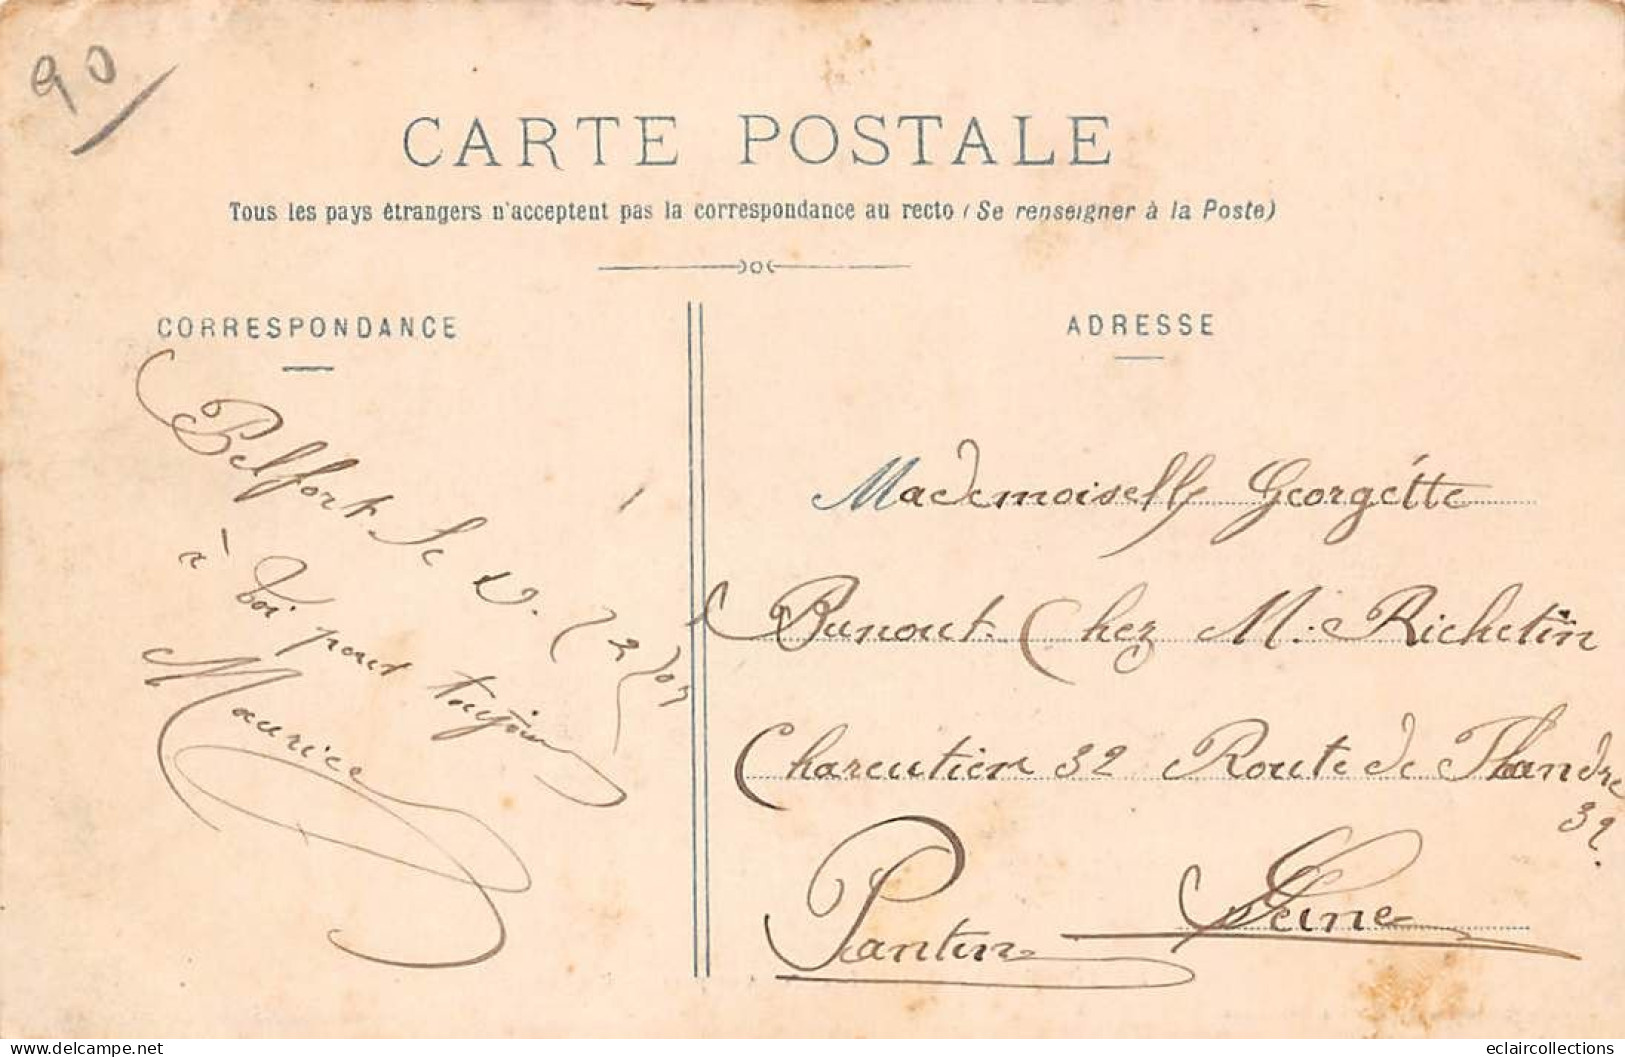 90
CARTE POSTALE
Tous les pays étrangers n'acceptent pas la correspondance au recto (Se renseigner à la Poste)
CORRESPONDANCE
Belfort le
à toi pour toujours
Maurice
ADRESSE
Mademoiselle Georgétte
Bunout Chez M. Richetin
Charcutier 32 Route de Flandre
32.
Pantin Seine
delcampe.net
eclaircollections